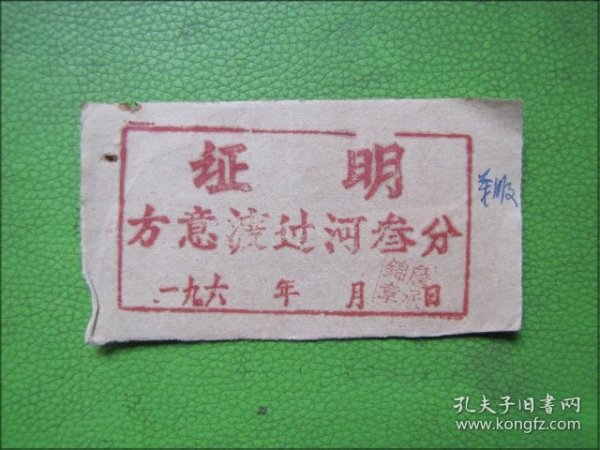 证 明
方意渡过河叁分
一九六 年 月 日
孔夫子旧书网
www.kongfz.com